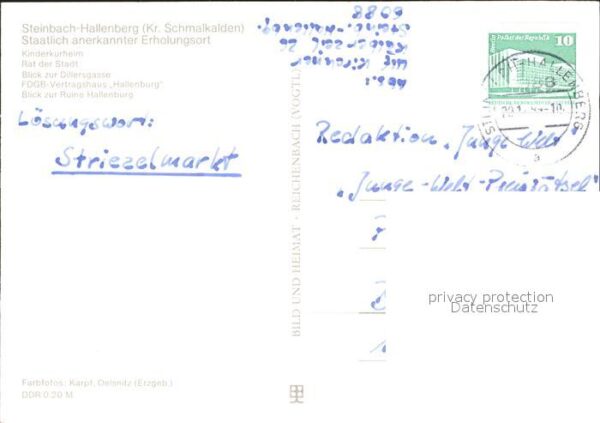 Steinbach-Hallenberg (Kr. Schmalkalden)
Staatlich anerkannter Erholungsort
Kinderkurheim
Rat der Stadt
Blick zur Dillersgasse
FDGB-Vertragshaus „Hallenburg"
Blick zur Ruine Hallenburg
Lösungswort:
Striezelmarkt
Abs.:
6088
BILD UND HEIMAT · REICHENBACH (VOGTL
Palast der Republik 10
HALLENBERG
Redaktion „Junge Welt"
„Junge-Welt-Preisrätsel"
privacy protection
Datenschutz
Farbfotos: Karpf, Oelsnitz (Erzgeb.)
DDR 0.20 M